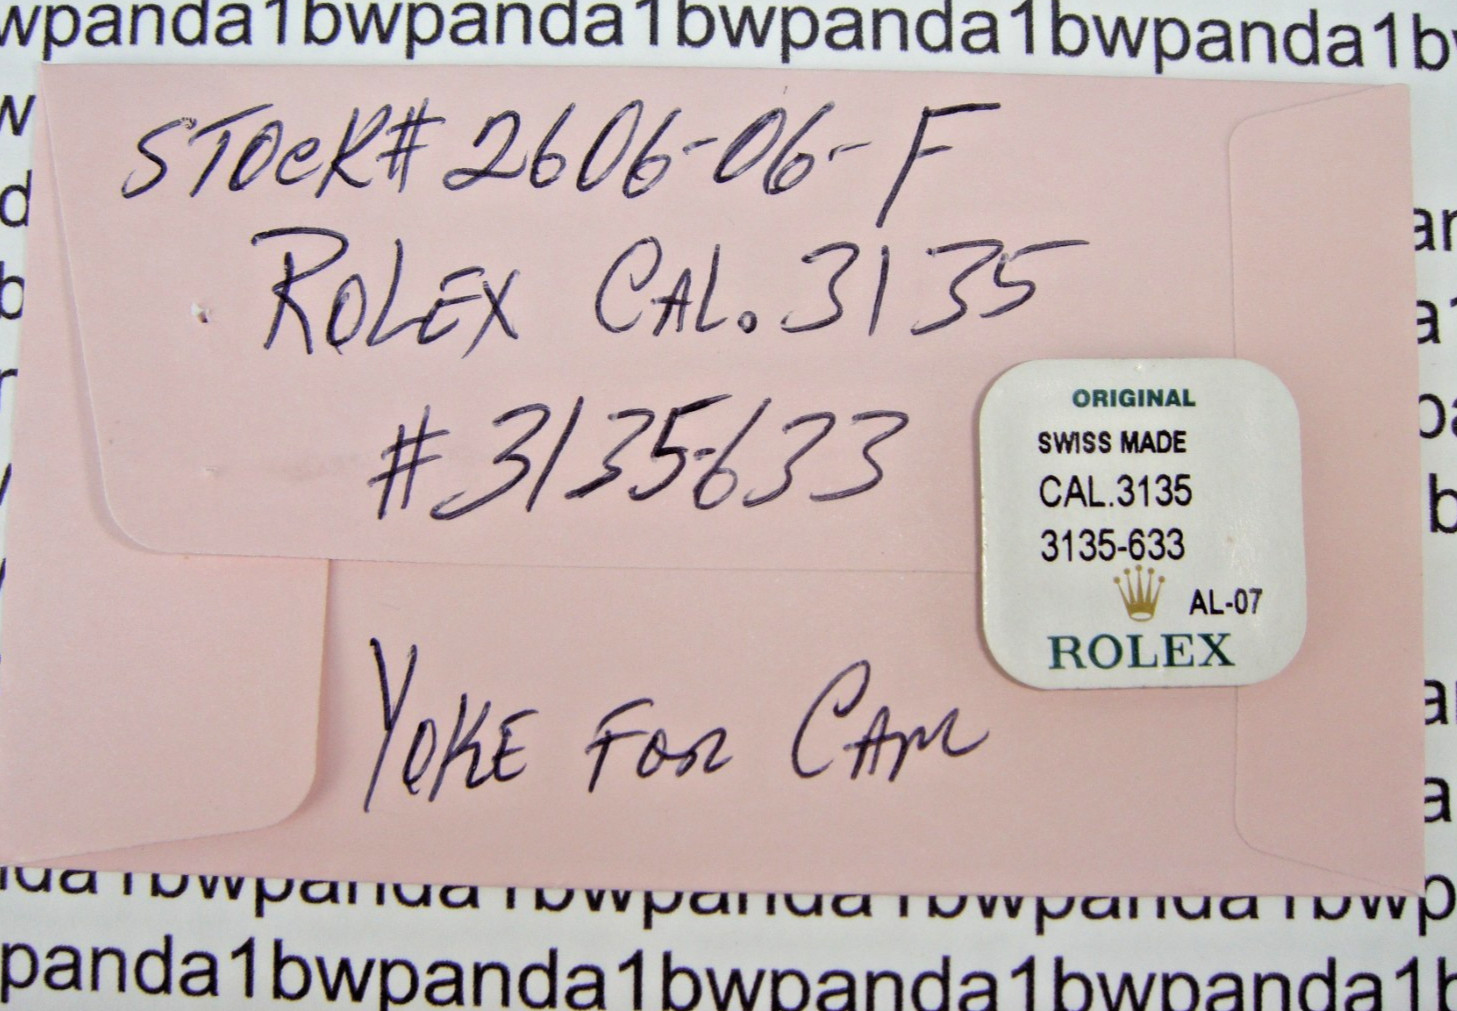 wpanda1bwpanda1bwpanda1bwpanda1bw
STOCK# 2606-06-F
ROLEX CAL. 3135
#3135-633
ORIGINAL
SWISS MADE
CAL.3135
3135-633
AL-07
ROLEX
YOKE FOR CAM
nda1bwpanda1bwpanda1bwpanda1bwp
panda1bwpanda1bwpanda1bwpanda1b